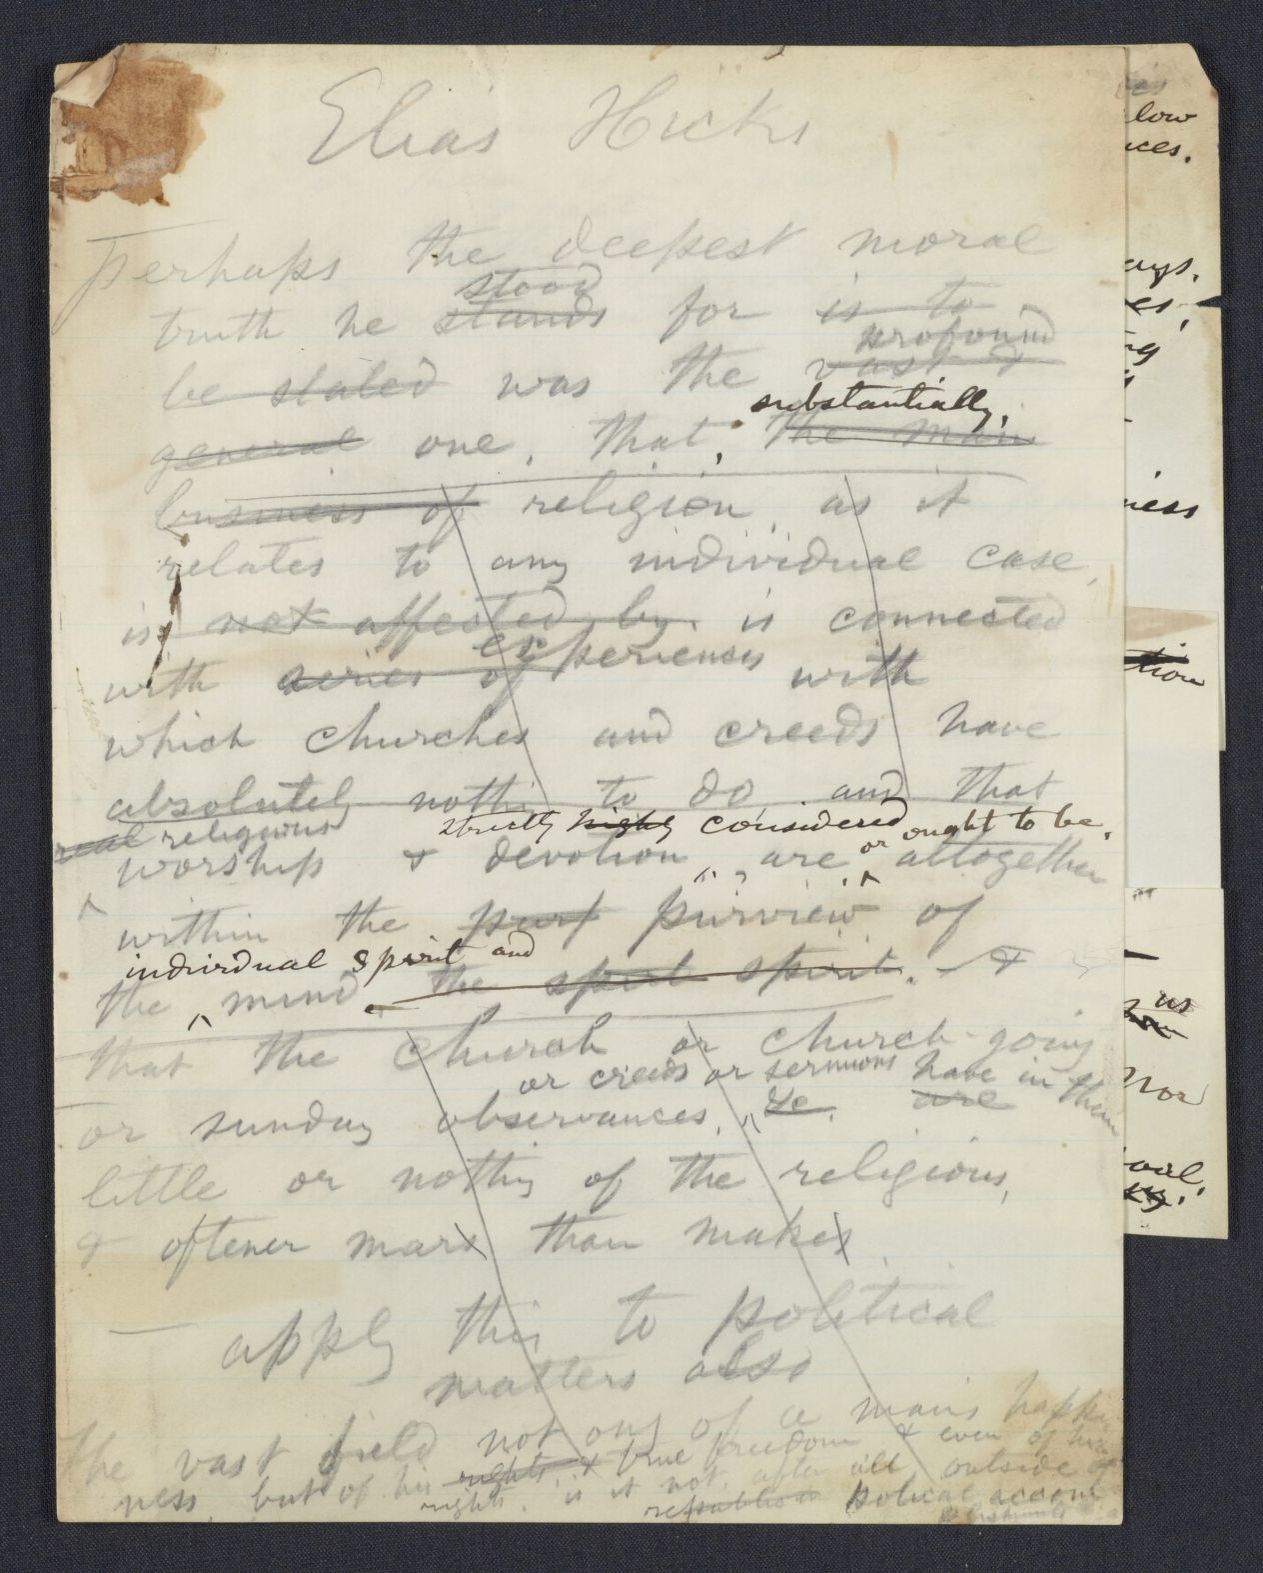 Elias Hicks
Perhaps the deepest moral
stood
truth he stands for is to
profound
be stated was the vast &
substantially,
general one, that, the main
business of religion, as it
relates to any individual case,
is not affected by is connected
experiences
with series of with
which churches and creeds have
absolutely nothing to do, and that
real religious strictly highly considered ought to be,
worship & devotion, are or altogether
within the purf purview of
individual spirit and
the mind the spirit spirit. &
that the church or church-going
or creeds or sermons have in them
or sunday observances, &c. are
little or nothing of the religious,
& oftener mars than makes
— apply this to political
matters also
The vast field not only of a man's happi
ness, but of his rights & true freedom & even of his
rights, is it not, after all outside of
republican political
low
nces.
ays.
es,
ng
ness
tion
us
nor